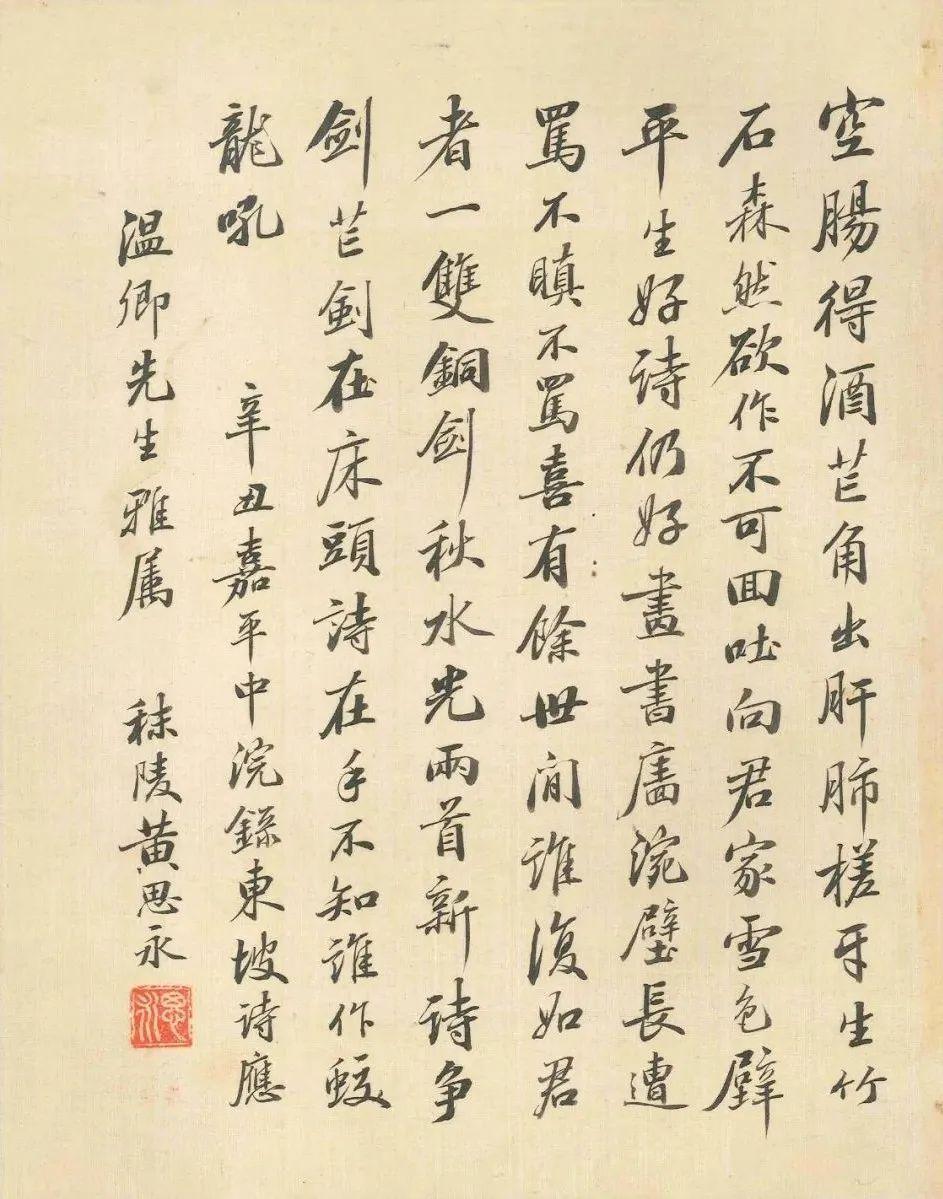 空腸得酒芒角出肝肺槎牙生竹
石森然欲作不可回吐向君家雪色壁
平生好詩仍好畫書廧涴壁長遭
罵不瞋不罵喜有餘世間誰復如君
者一雙銅劍秋水光兩首新詩爭
劍芒劍在床頭詩在手不知誰作蛟
龍吼
辛丑嘉平中浣錄東坡詩應
温卿先生雅属
秣陵黃思永
思永